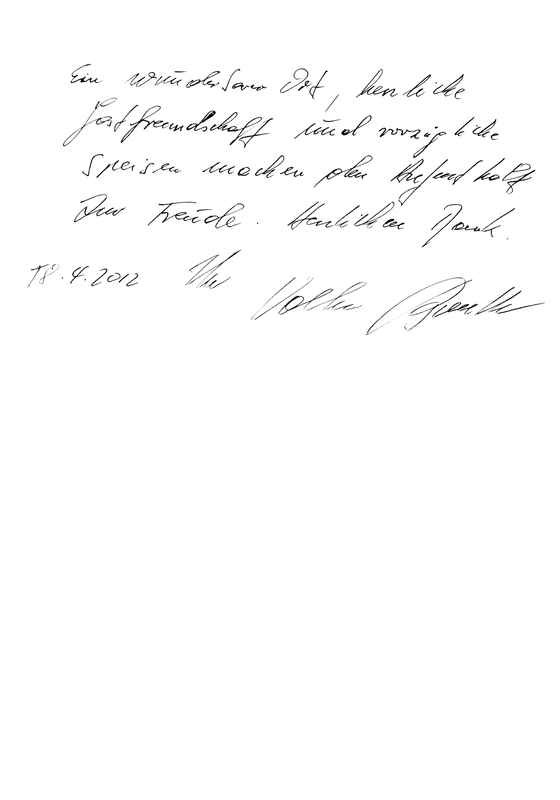 Ein wundersamer Ort, herzliche
Gastfreundschaft und vorzügliche
Speisen machen den Aufenthalt
zur Freude. Herzlichen Dank.
18.4.2012 Ihr Volker